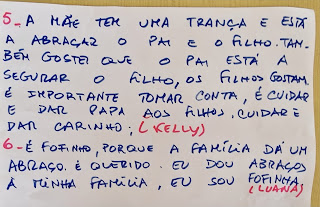 5- A MÃE TEM UMA TRANÇA E ESTÁ
A ABRAÇAR O PAI E O FILHO. TAM-
BÉM GOSTEI QUE O PAI ESTÁ A
SEGURAR O FILHO, OS FILHOS GOSTAM.
É IMPORTANTE TOMAR CONTA, É CUIDAR
E DAR PAPA AOS FILHOS, CUIDAR E
DAR CARINHO; (KELLY)
6- É FOFINHO, PORQUE A FAMÍLIA DÁ UM
ABRAÇO. É QUERIDO. EU DOU ABRAÇOS
À MINHA FAMÍLIA, EU SOU FOFINHA
(LUANA)